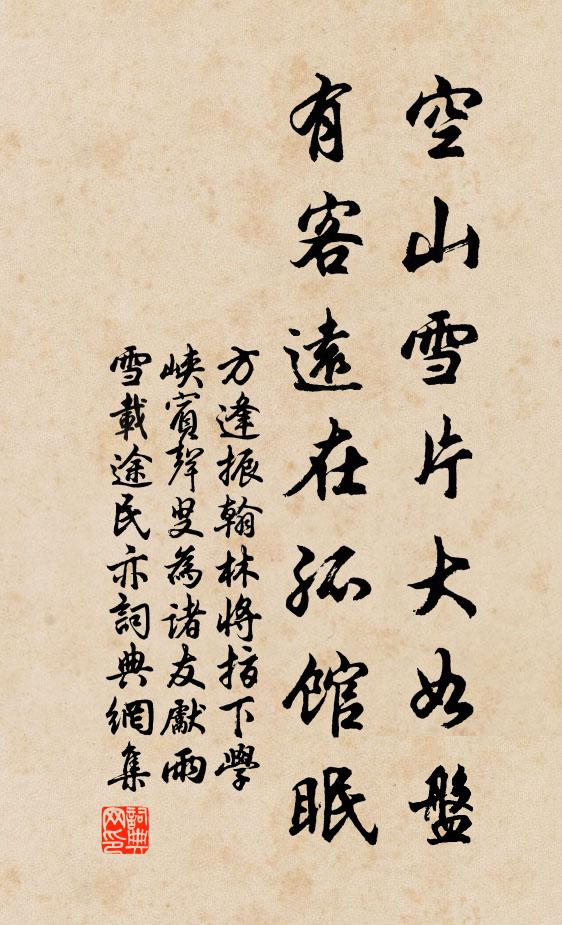 空山雪片大如盤
有客遠在孤館眠
方逢振翰林將指下學
峽賓聲叟為諸友獻兩
雪載途民亦詞典網集
詞典
网印